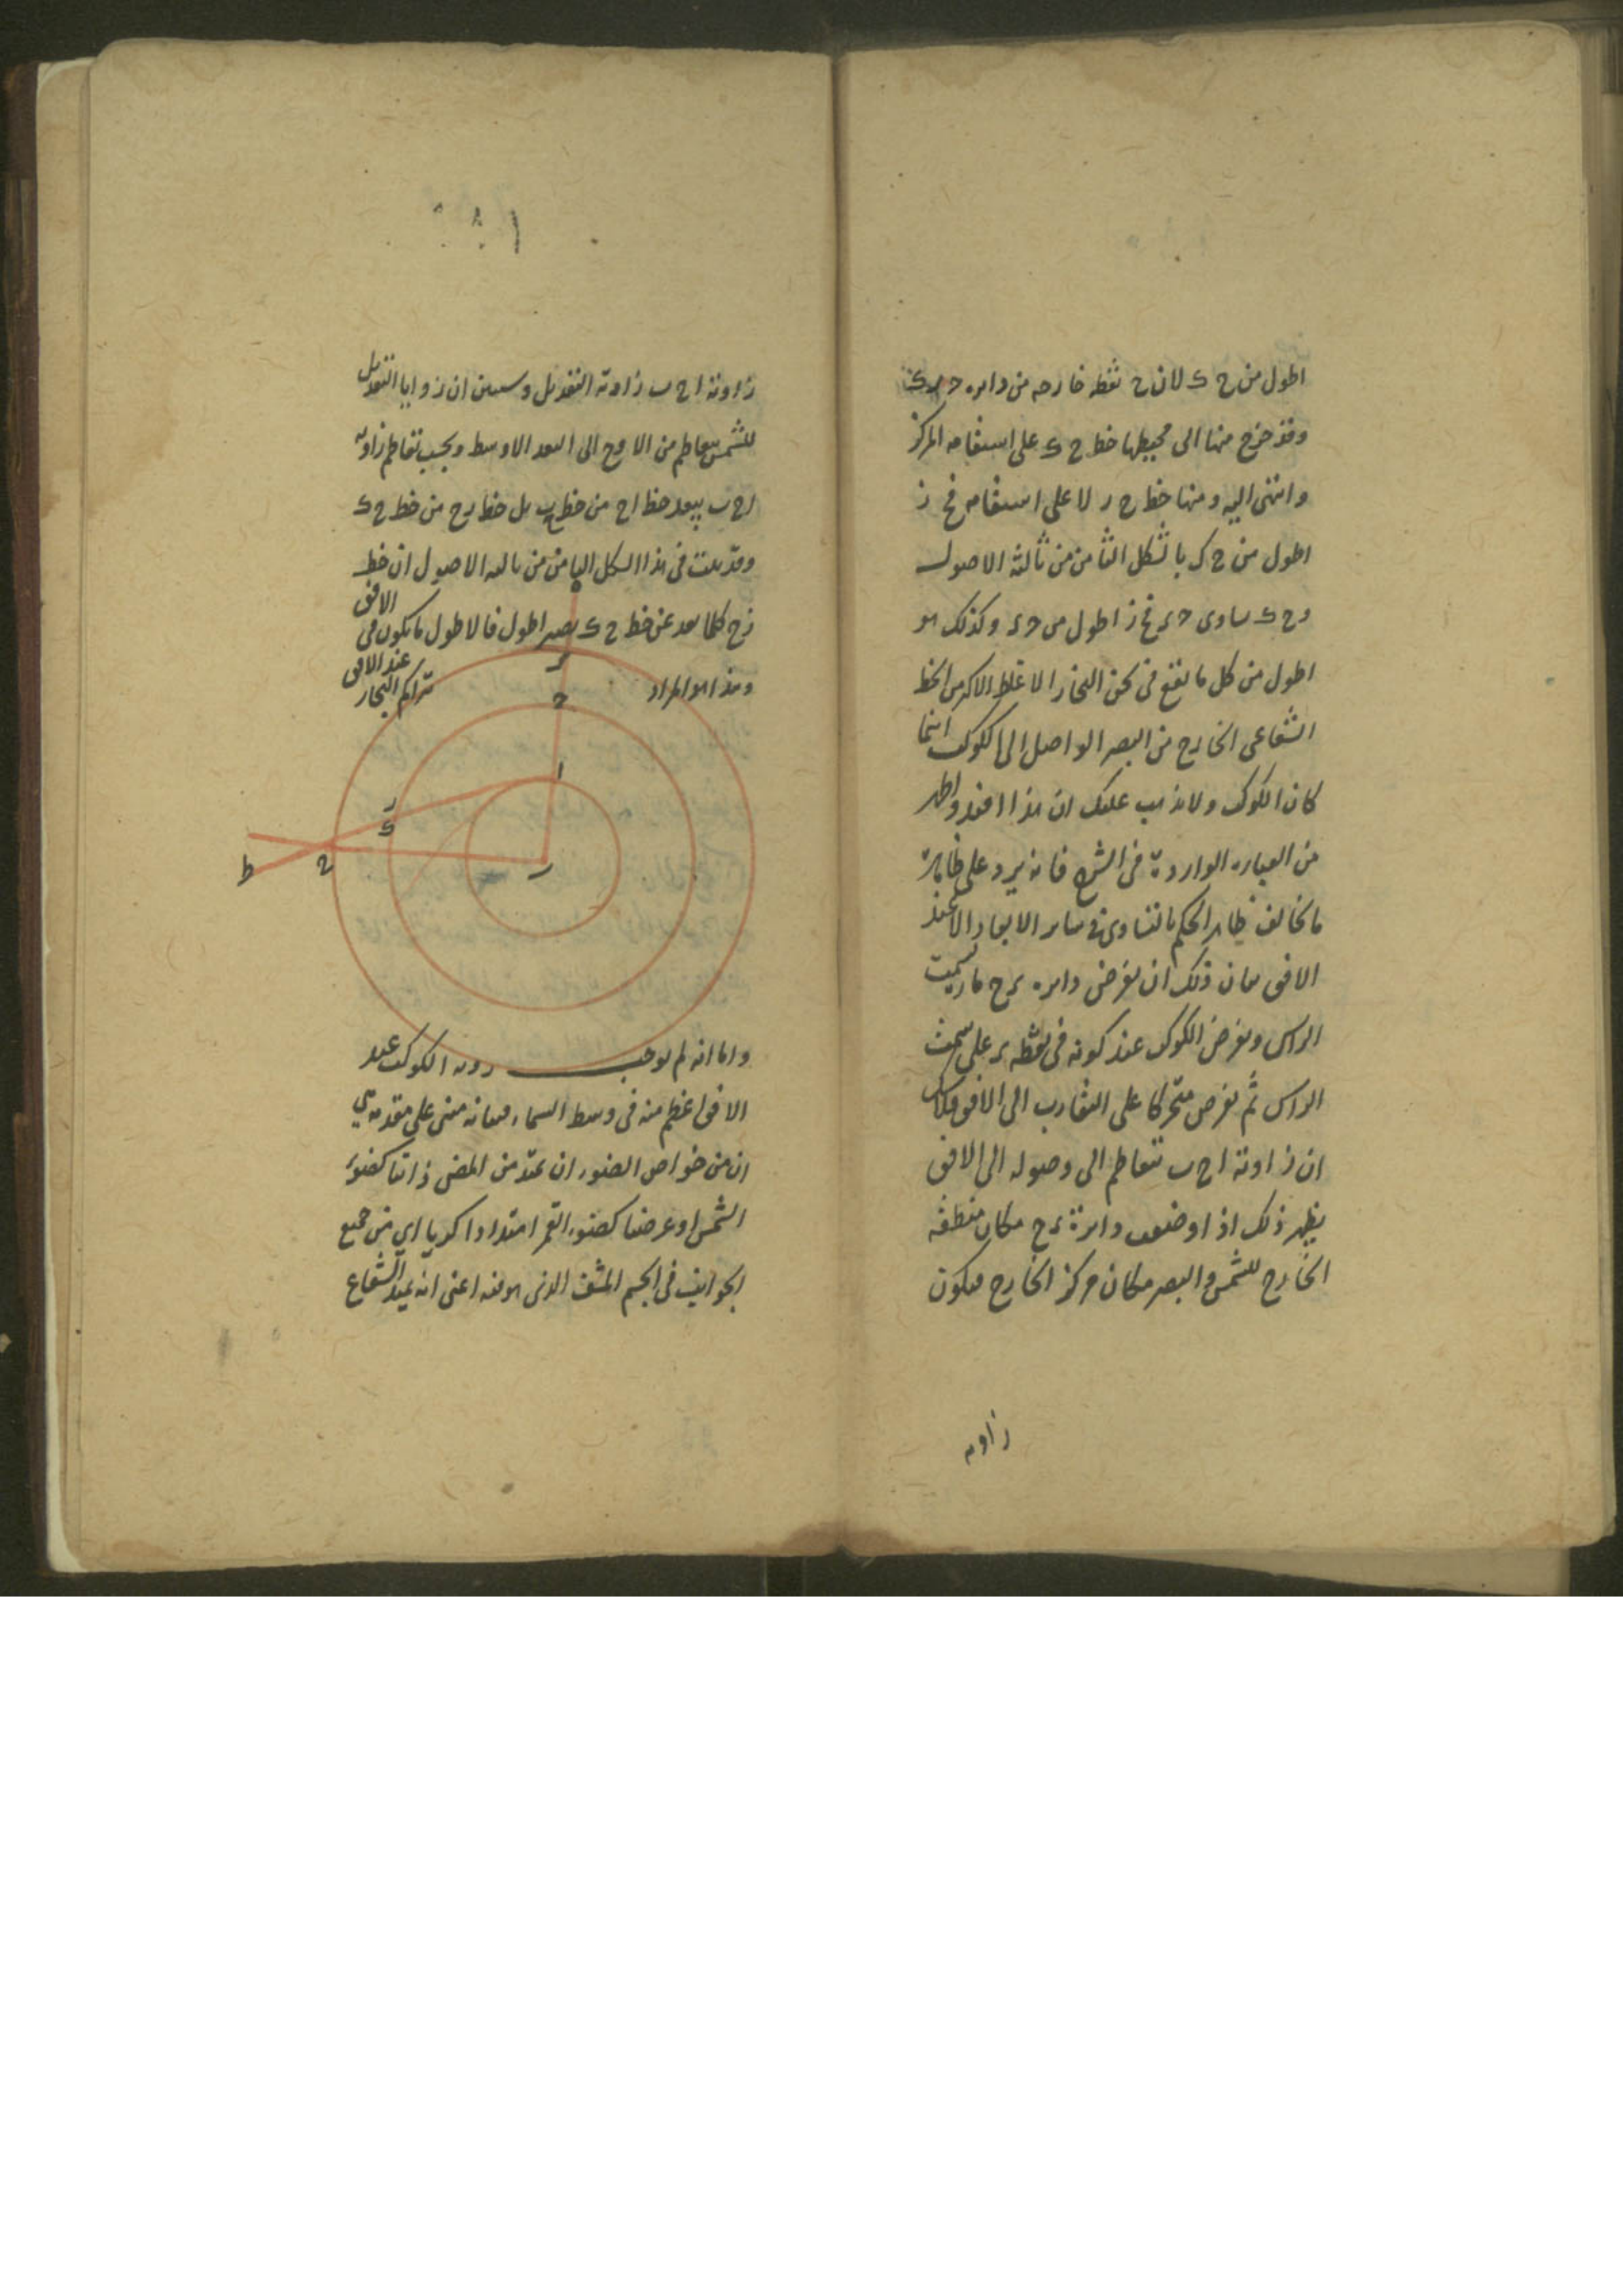 اطول من ح ك لان ح نقطه خارجه من دايره
وقد خرج منها الى محيطها خط ح ك على استقامه المركز
وانتهى اليه ومنها خط ح ر لا على استقامه فح ز
اطول من ح ك بالشكل الثامن من ثالثة الاصول
وح ك ساوى فح ز اطول من وكذلك هو
اطول من كل ما يقع فى ثخن البخار الاغلظ الاكدر من الخط
الشعاعى الخارج من البصر الواصل الى الكوكب اينما
كان الكوكب ولا يذهب عليك ان هذا
من العباره الواردة فى الشرح فانه يرد على ظاهره
ما يخالف ظاهر الحكم بالتساوى فى ساير الابعاد الا عند
الافق بيان ذلك ان نفرض دايره ى ح مارة بسمت
الراس ونفرض الكوكب عند كونه فى نقطه ى على سمت
الراس ثم نفرض متحركا على التقارب الى الافق
ان زاوية ا ح ب تتعاظم الى وصوله الى الافق
يظهر ذلك اذا وضعت دايرة ى ح مكان منطقه
الخارج للشمس والبصر مكان مركز الخارج فيكون
زاويه
زاوية ا ح ب زاوية التعديل وسيبين ان زوايا التعديل
للشمس يتعاظم من الاوج الى البعد الاوسط وبحسب تعاظم زاويه
ا ح ب يبعد خط ا ح من خط ح ب بل خط ر ح من خط ح ك
وقد بينت فى هذا الشكل الثامن من ثالثه الاصول ان خط
ز ح كلما بعد عن خط ح ك يصير اطول فالاطول ما يكون فى
الافق
وهذا هو المراد
عند الافق
تراكم البخار
ه
ى
ح
ا
ر
ك
ح
ط
ب
واما انه لم يوجب رويه الكوكب عند
الافق اعظم منه فى وسط السماء فبيانه مبنى على مقدمه هى
ان من خواص الضوء ان يمتد من المضى ذاتيا كضوء
الشمس او عرضيا كضوء القمر امتدادا كريا اى من جميع
الجوانب فى الجسم المشف الذى هو فيه اعنى انه يمتد الشعاع